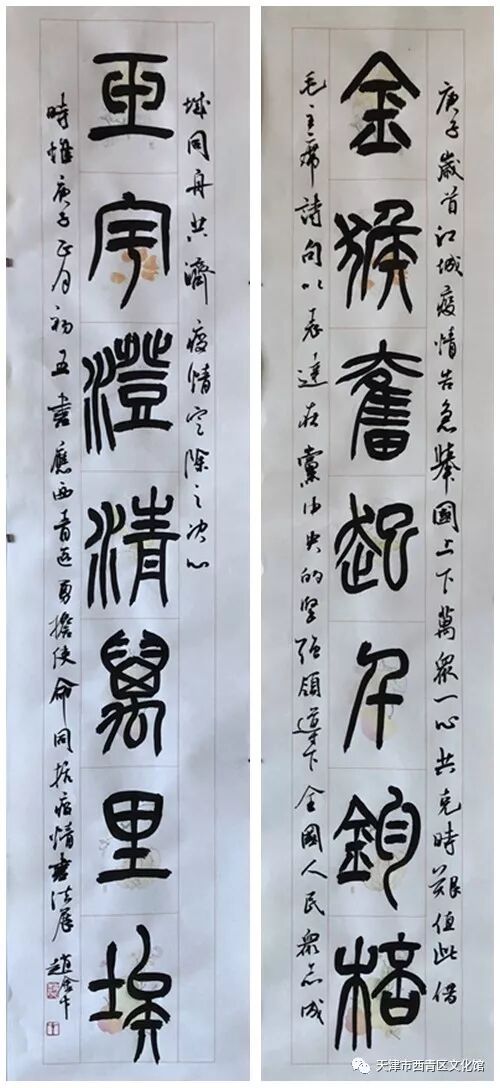 庚子歲首江城疫情告急舉國上下萬衆一心共克時艱值此借
金猴奮起千鈞棓
毛主席詩句以表達在黨中央的堅強領導下全國人民衆志成
城同舟共濟疫情定除之決心
玉宇澄清萬里埃
時惟庚子正月初五書應西青區勇擔使命同抗疫情書法展 趙金
天津市西青区文化馆